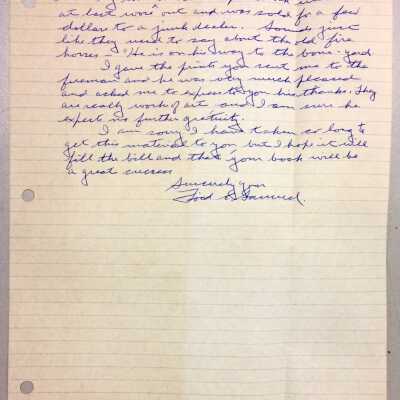 at last wore out and was sold for a few
dollars to a junk dealer. Sounds just
like they used to say about the old fire
horses - "He is on his way to the bone-yard
I gave the prints you sent me to the
fireman and he was very much pleased
and asked me to express to you his thanks. They
are really work of art and I am sure he
expects no further gratuity.
I am sorry I have taken so long to
get this material to you but I hope it will
fill the bill and that your book will be
a great success
Sincerely your